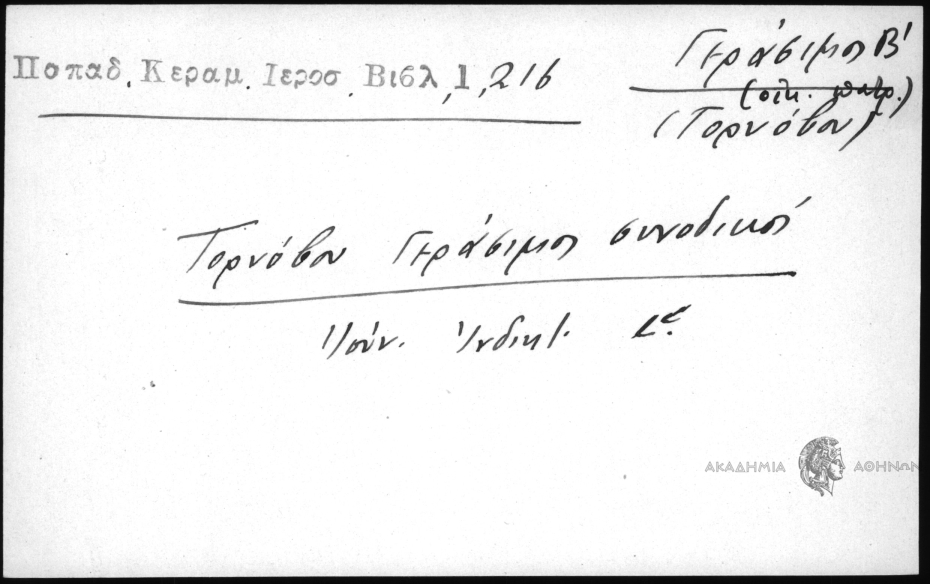 Παπαδ. Κεραμ. Ιεροσ. Βιβλ, 1, 216
Γεράσιμος Β'
(οἰκ. πατρ.)
(Τορνόβου)
Τορνόβου Γεράσιμος συνοδικός
Ἰούν. Ἰνδικτ.
ΑΚΑΔΗΜΙΑ ΑΘΗΝΩΝ